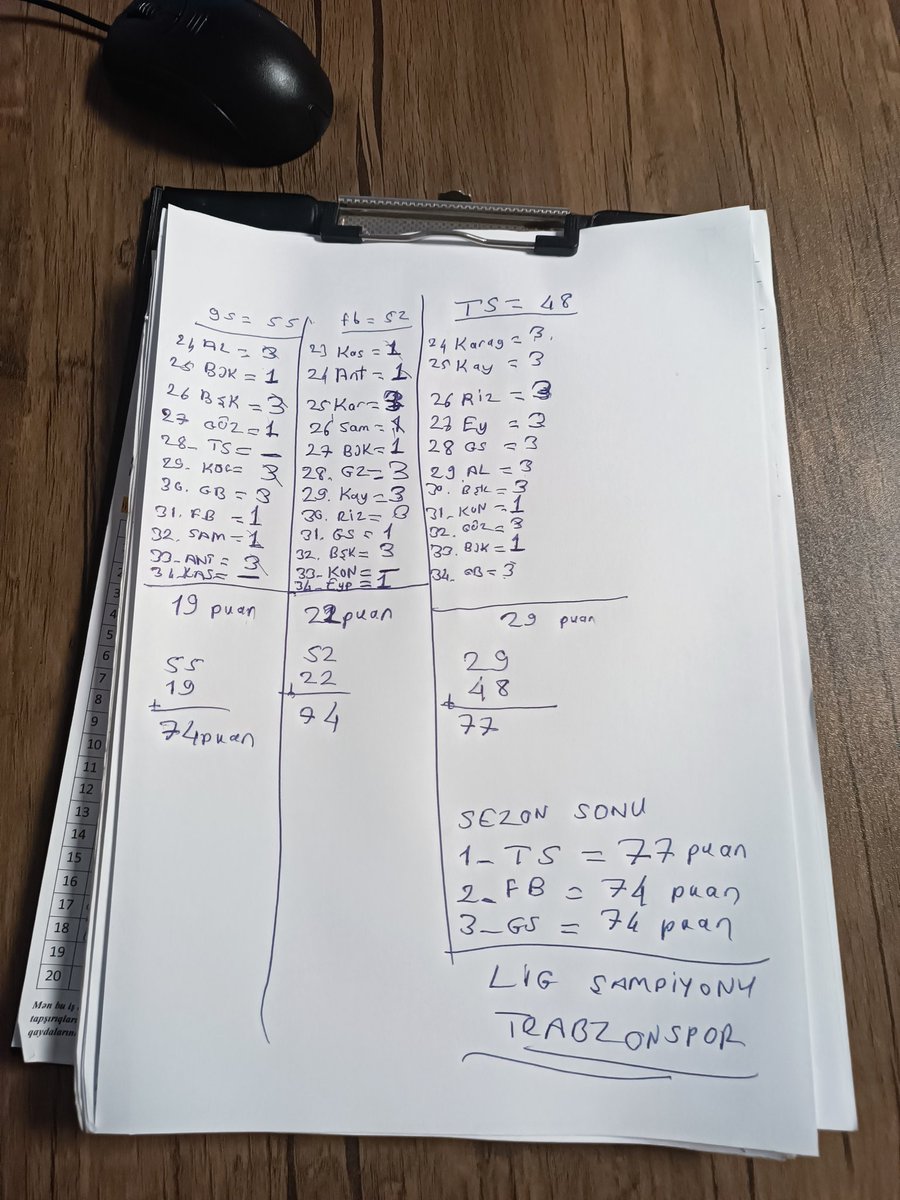 gs = 55
24 AL = 3
25 BJK = 1
26 BŞK = 3
27 GÖZ = 1
28- TS = -
29. KOC = 3
30. GB = 3
31. FB = 1
32. SAM = 1
33- ANT = 3
34- KAS = -
19 puan
55
19
+
74 puan
fb = 52
23 Kas = 1
24 Ant = 1
25 Kar = 3
26 Sam = 1
27 BJK = 1
28. GZ = 3
29. Kay = 3
30. Riz = 3
31. GS = 1
32. BŞK = 3
33- KON = -
34- Eyp = 1
22 puan
52
22
+
94
TS = 48
24 Karag = 3
25 Kay = 3
26 Riz = 3
27 Ey = 3
28 GS = 3
29 AL = 3
30. BŞK = 3
31- KON = 1
32. GÖZ = 3
33. BJK = 1
34- GB = 3
29 puan
29
48
+
77
SEZON SONU
1- TS = 77 puan
2- FB = 74 puan
3- GS = 74 puan
LİG ŞAMPİYONU
TRABZONSPOR
1
2
3
4
5
6
7
8
9
10
11
12
13
14
15
16
17
18
19
20
Mən bu iş
tapşırıqları
qaydaların